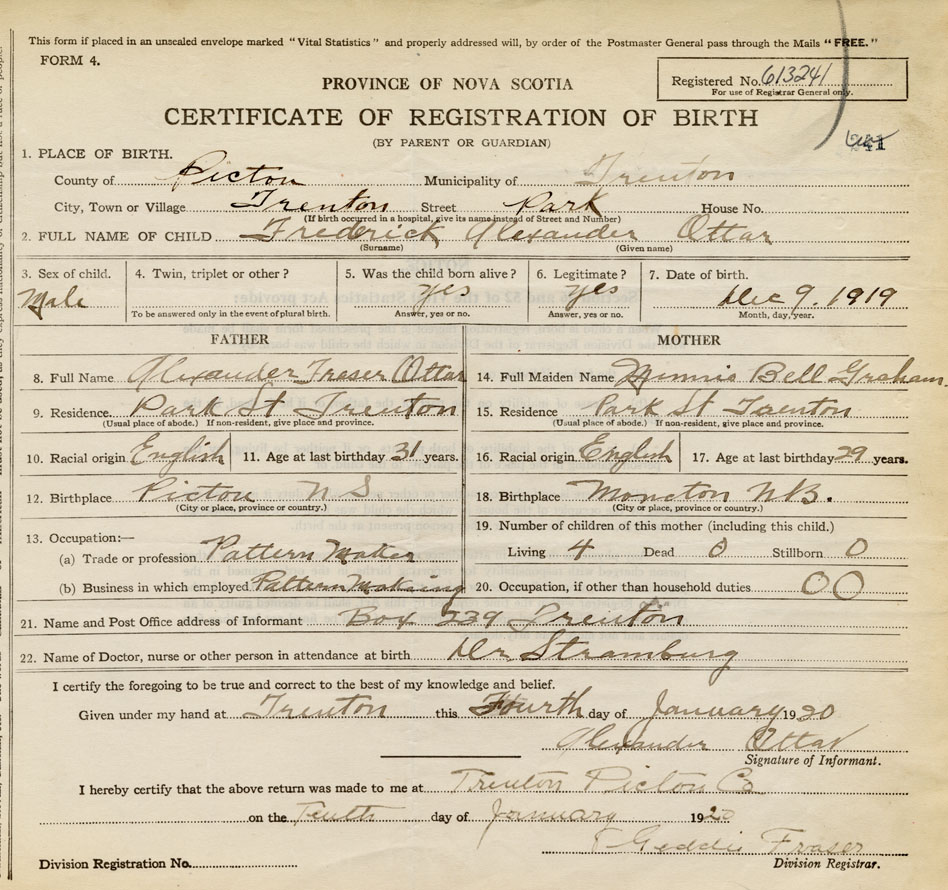 This form if placed in an unsealed envelope marked "Vital Statistics" and properly addressed will, by order of the Postmaster General pass through the Mails "FREE."
FORM 4.
Registered No. 613241
For use of Registrar General only.
PROVINCE OF NOVA SCOTIA
CERTIFICATE OF REGISTRATION OF BIRTH
(BY PARENT OR GUARDIAN)
241
1. PLACE OF BIRTH.
County of Picton Municipality of Trenton
City, Town or Village Trenton Street Park House No.
(If birth occurred in a hospital, give its name instead of Street and Number)
2. FULL NAME OF CHILD Frederick Alexander Ottar
(Surname) (Given name)
3. Sex of child. 4. Twin, triplet or other? 5. Was the child born alive? 6. Legitimate? 7. Date of birth.
Male yes yes Dec 9. 1919
To be answered only in the event of plural birth. Answer, yes or no. Answer, yes or no. Month, day, year.
FATHER MOTHER
8. Full Name Alexander Fraser Ottar 14. Full Maiden Name Minnie Bell Graham
9. Residence. Park St Trenton 15. Residence Park St Trenton
(Usual place of abode.) If non-resident, give place and province. (Usual place of abode.) If non-resident, give place and province.
10. Racial origin English 11. Age at last birthday 31 years. 16. Racial origin English 17. Age at last birthday 29 years.
12. Birthplace Picton N S 18. Birthplace Moncton N.B.
(City or place, province or country.) (City or place, province or country.)
13. Occupation:— 19. Number of children of this mother (including this child.)
(a) Trade or profession Pattern Maker Living 4 Dead 0 Stillborn 0
(b) Business in which employed Pattern Making 20. Occupation, if other than household duties 00
21. Name and Post Office address of Informant Box 239 Trenton
22. Name of Doctor, nurse or other person in attendance at birth Dr Stramburg
I certify the foregoing to be true and correct to the best of my knowledge and belief.
Given under my hand at Trenton this Fourth day of January 1920
Alexander Ottar
Signature of Informant.
I hereby certify that the above return was made to me at Trenton Picton Co
on the Tenth day of January 1920
Geddie Fraser
Division Registration No. Division Registrar.